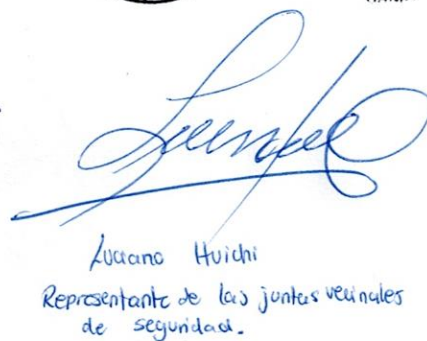 Luciano Huichi
Representante de las juntas vecinales
de seguridad.